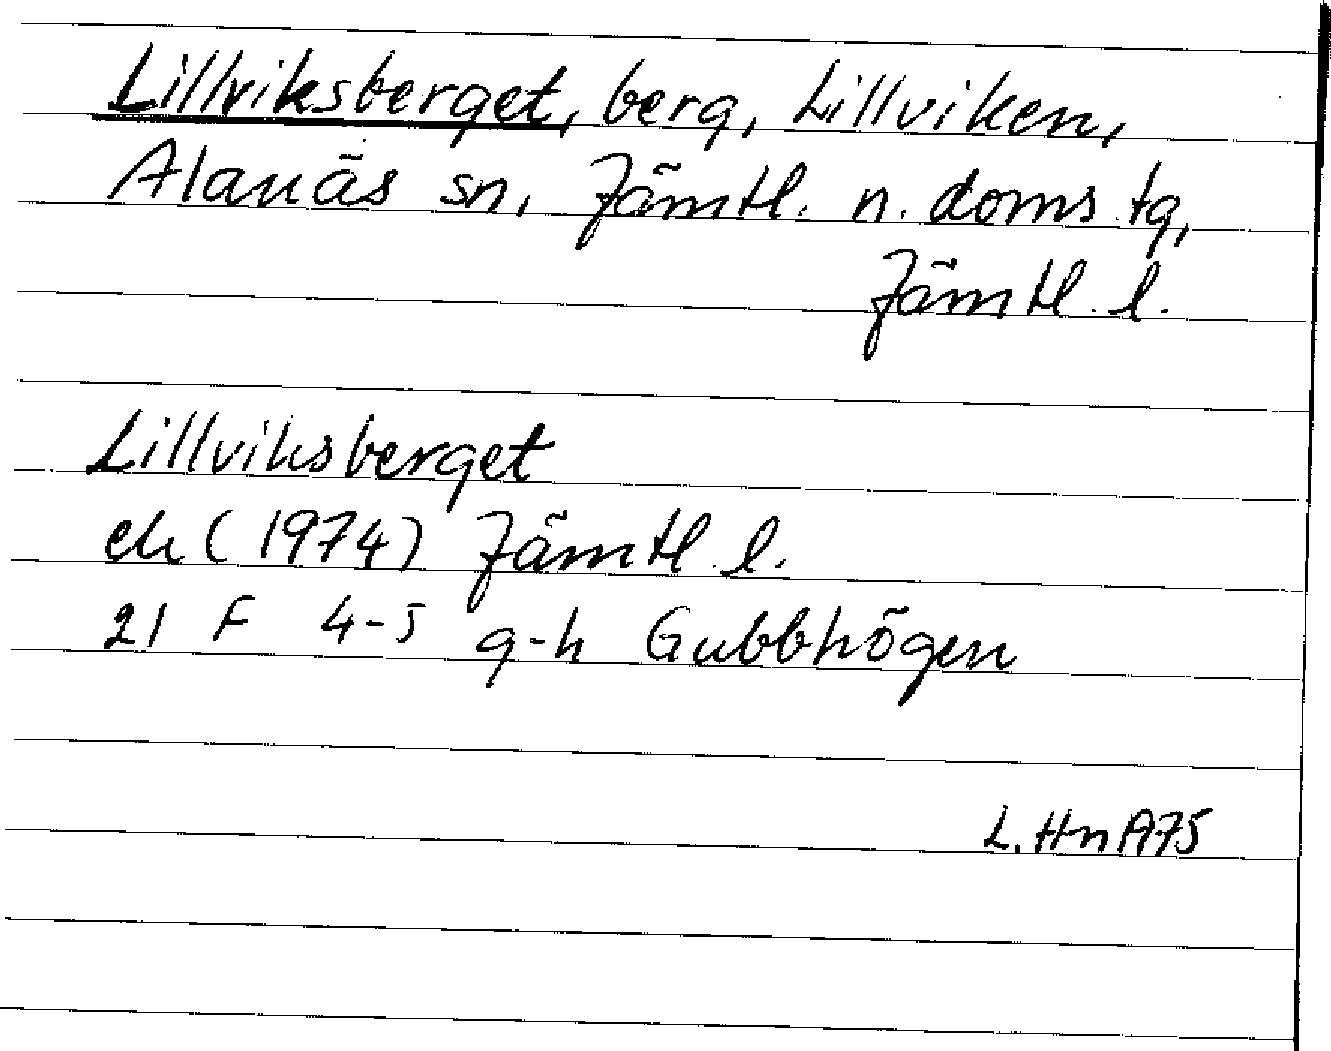 Lillviksberget, berg, Lillviken,
Alanäs sn, Jämtl. n. doms.tg,
Jämtl. l.
Lillviksberget
ek (1974) Jämtl. l.
21 F 4-5 g-h Gubbhögen
L. Hn 1975